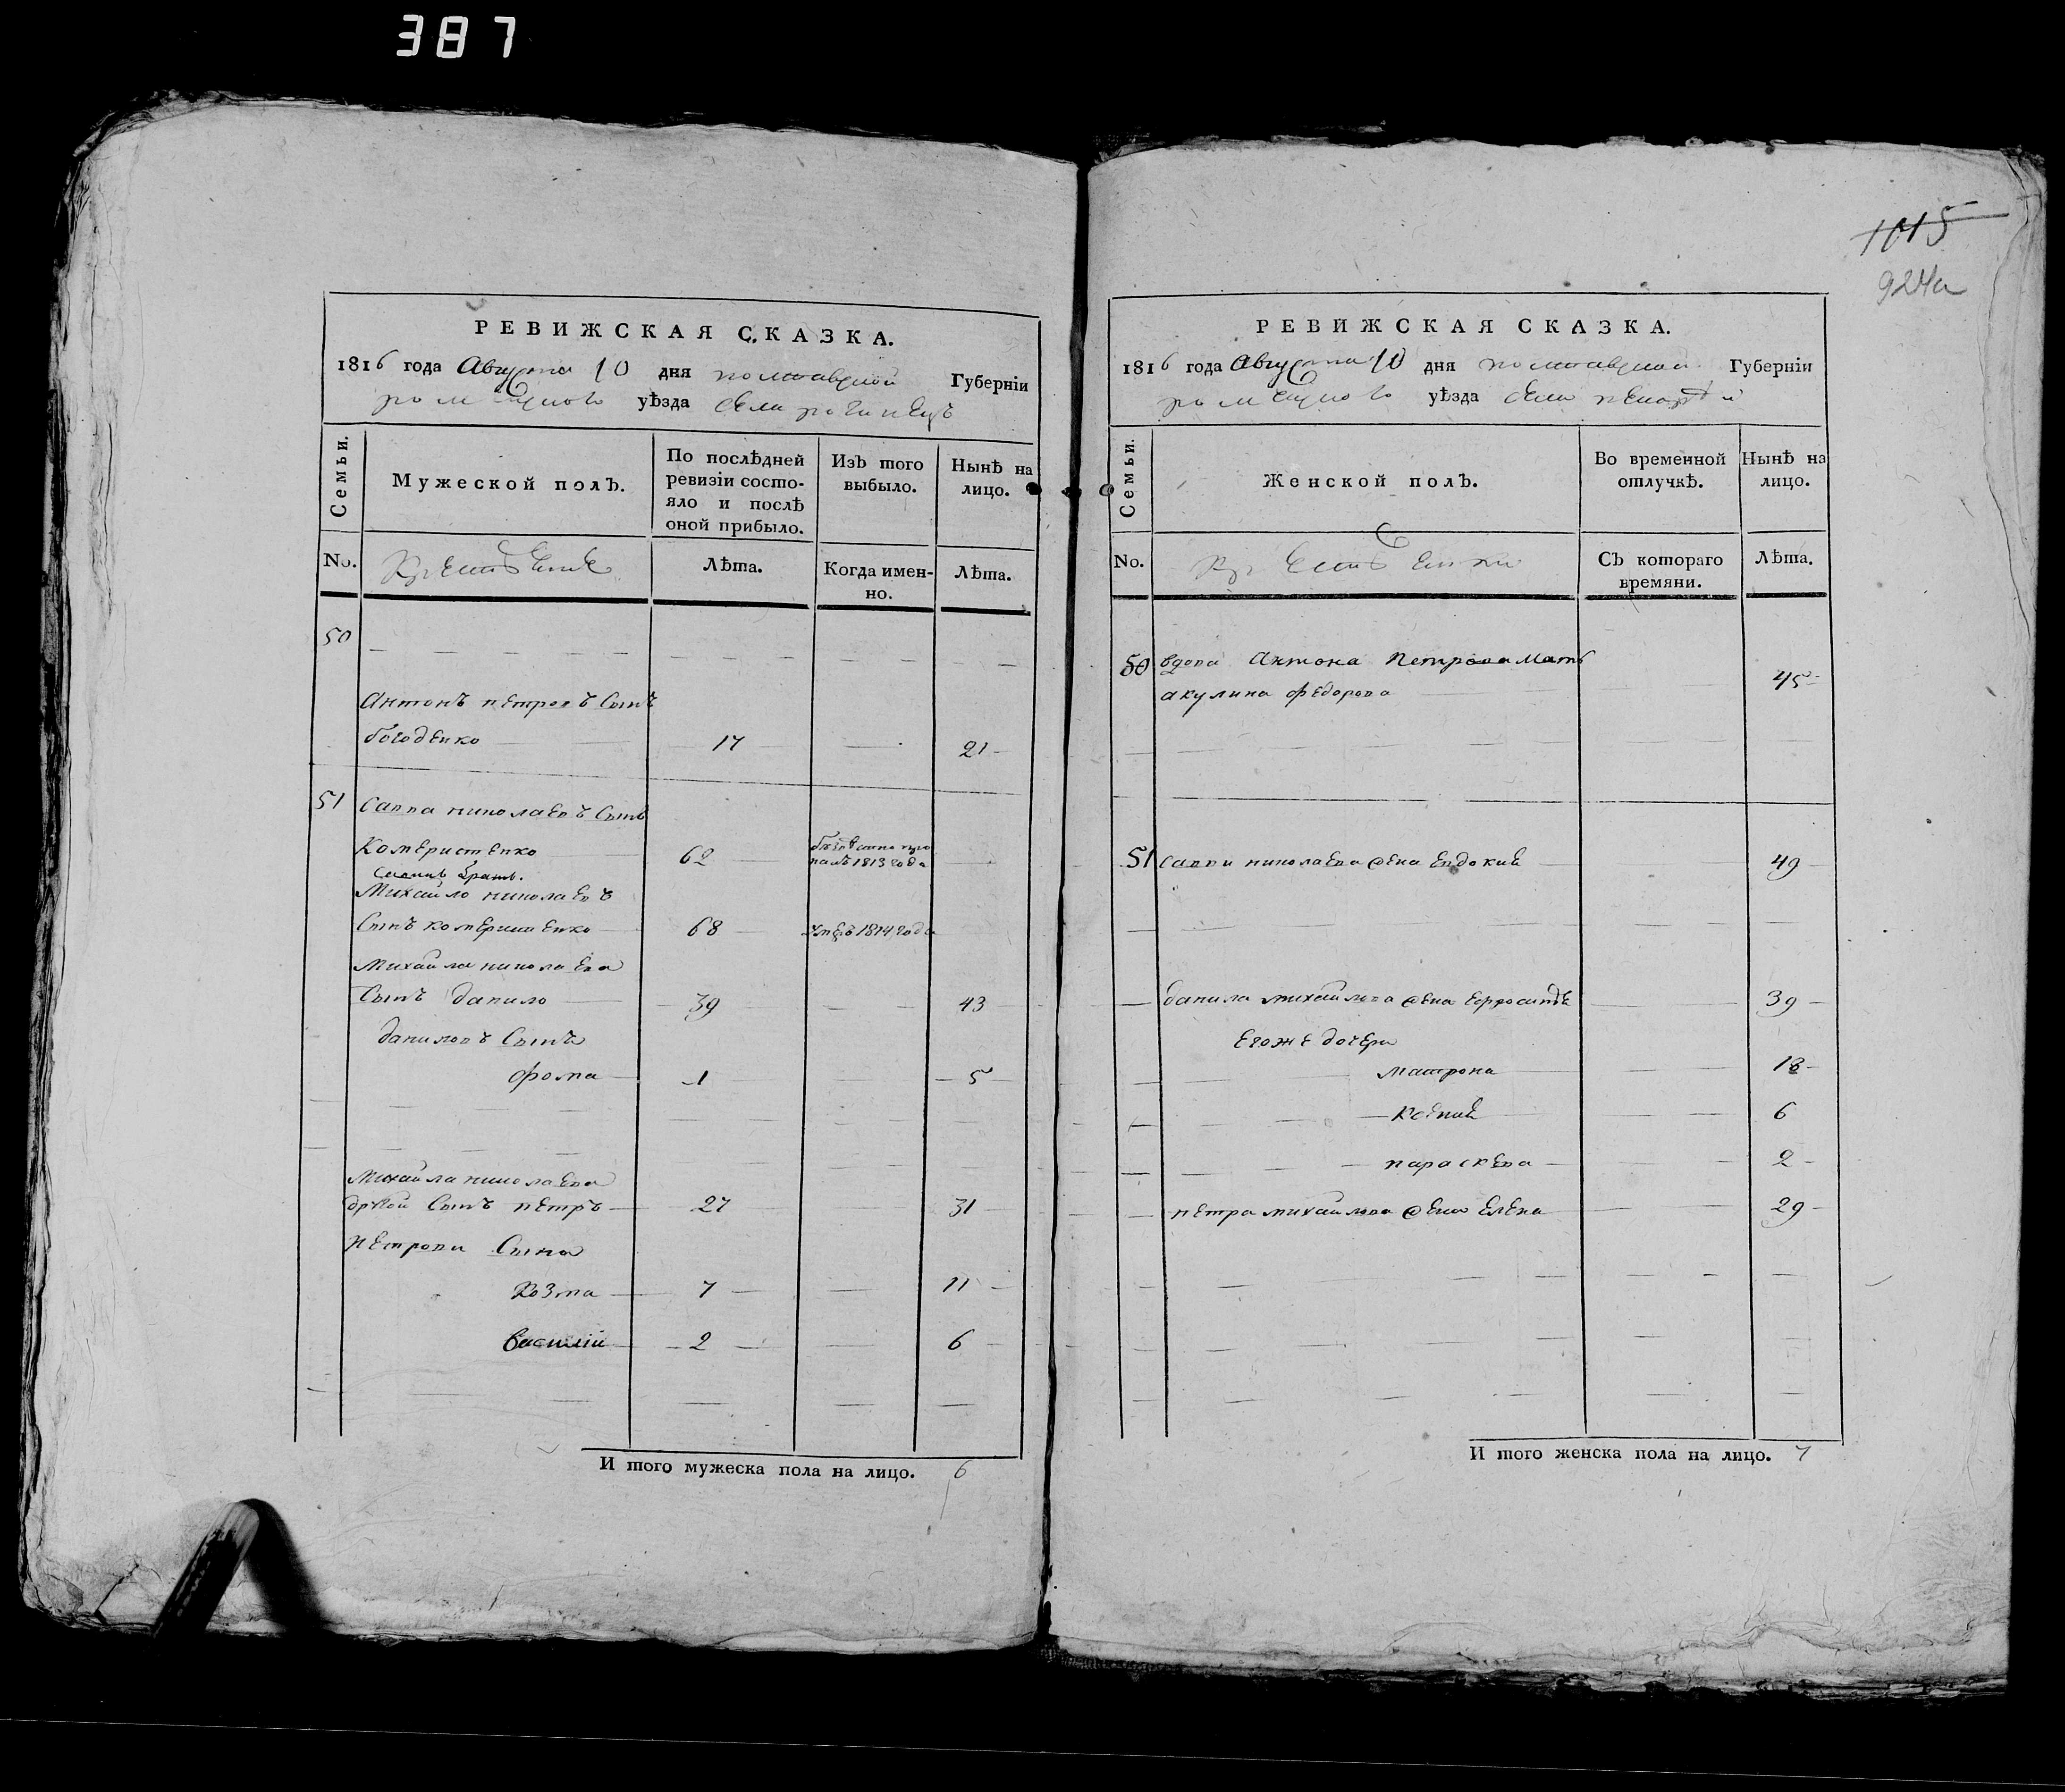 387
РЕВИЖСКАЯ СКАЗКА.
1816 года Августа 10 дня полтавской Губерніи
роменского уѣзда села
Семьи.
Мужеской полъ.
По послѣдней ревизіи состояло и послѣ оной прибыло.
Изъ того выбыло.
Нынѣ на лицо.
No.
Лѣта.
Когда именно.
Лѣта.
50
Антонъ петровъ Сынъ
богоденко 17 21
51 Савва николаевъ Сынъ
62 1813 года
братъ
Михайло николаевъ
Сынъ 68 1814 года
Михайла николаева
Сынъ данило 39 43
даниловъ Сынъ
фома 1 5
Михайла николаева
другой Сынъ петръ 27 31
петрови Сына
Козма 7 11
Василій 2 6
И того мужеска пола на лицо. 6
1015
924а
РЕВИЖСКАЯ СКАЗКА.
1816 года Августа 10 дня полтавской Губерніи
роменского уѣзда села
Семьи.
Женской полъ.
Во временной отлучкѣ.
Нынѣ на лицо.
No.
Съ котораго времяни.
Лѣта.
50 вдова Антона Петрова Мать
акулина федорова 45
51 савви николаева жена Евдокия 49
данила михайлова жена 39
егоже дочери
матрона 18
Ксения 6
параскева 2
петра михайлова жена елена 29
И того женска пола на лицо. 7